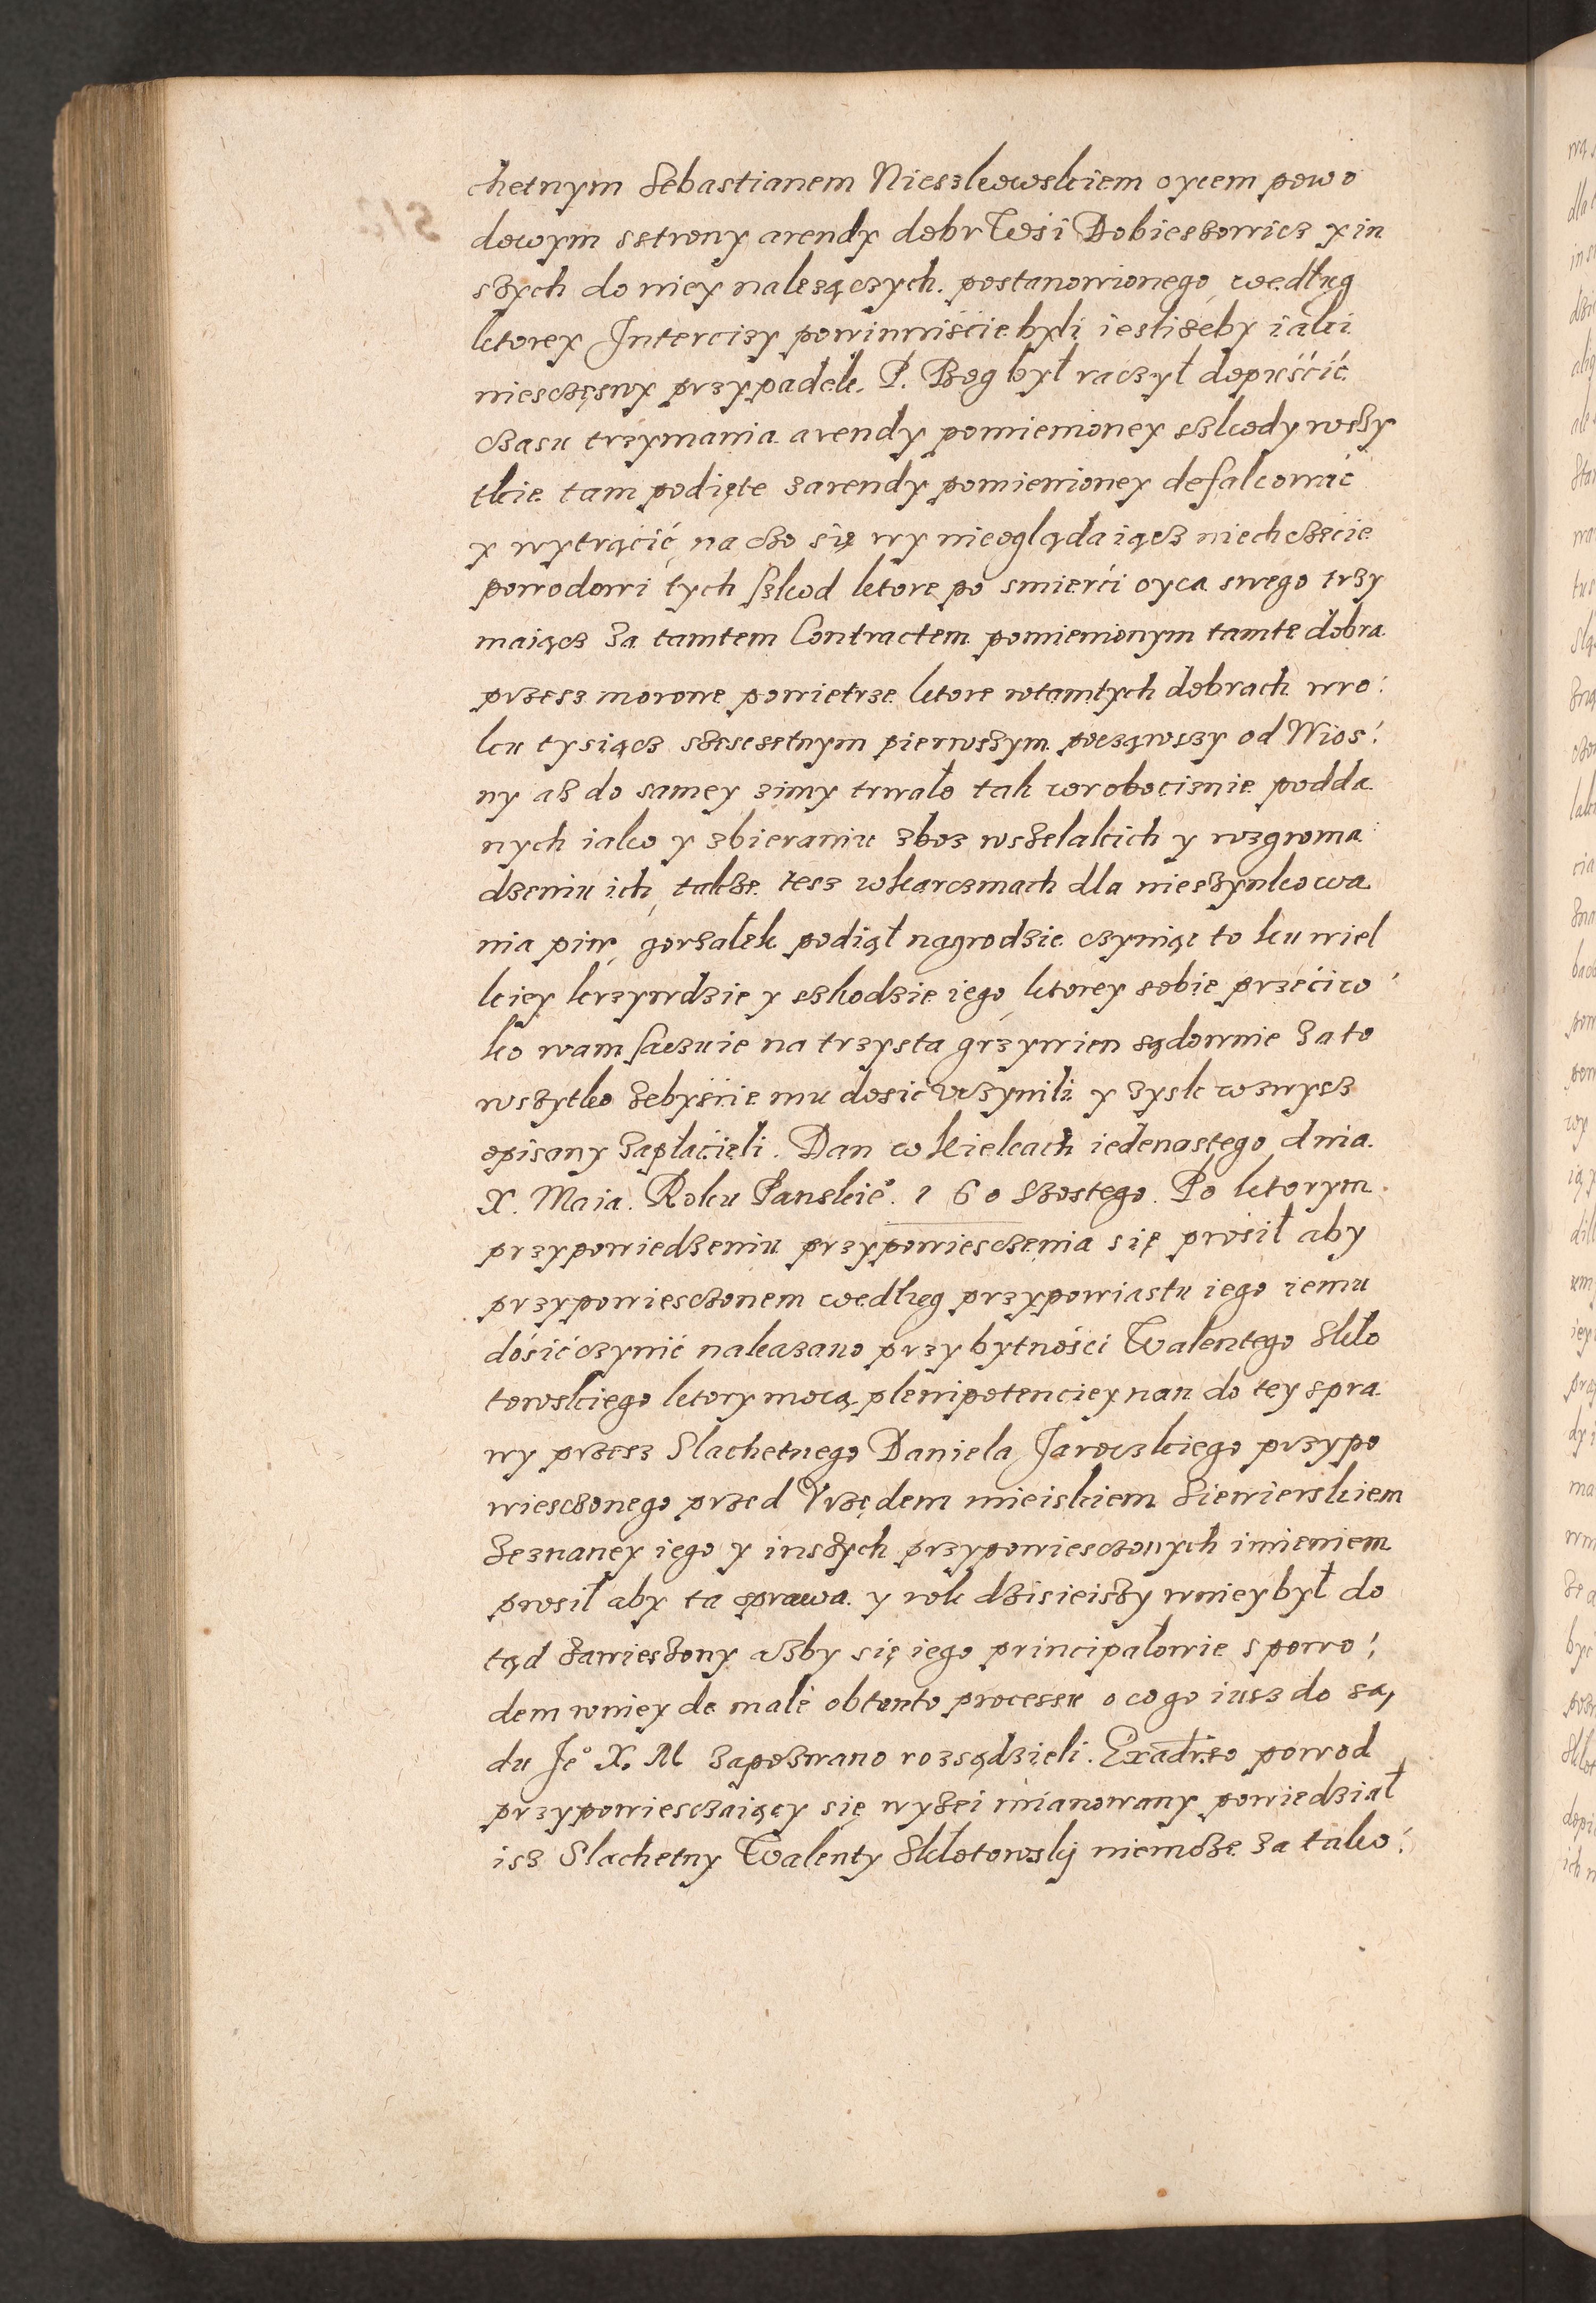 chetnym Sebastianem Nieszkowskiem oycem powo
dowym sstrony arendy dobr Wsi Dobieszowicz y in
szych do niey nalezączych. postanowionego, według
ktorey Intercizy powinniście byli iesliżeby iaki
niesczęsny przypadek. P. Bog był raczył dopuścić
czasu trzymania arendy pomienioney szkody wszy
tkie tam podięte zarendy pomienioney defalcować
y wytrącić, na czo się wy nieoglądaiącz niechczecie
powodowi tych szkod ktore po smierci oyca swego trzy
maiącz za tamtem Contractem pomienionym tamte dobra
przesz morowe powietrze ktore wtamtych dobrach wro:
ku tysiącz szescsetnym pierwszym począwszy od Wios:
ny asz do samey zimy trwało tak wrobociznie podda
nych iako y zbieraniu zboz wszelakich y wzgroma
dzeniu ich, takze tesz wkarczmach dla nieszynkowa
nia piw, gorzałek podiął nagrodzic czyniąc to ku wiel
kiey krzywdzie y szkodzie iego, ktorey sobie przeciw
ko wam saczuie na trzysta grzywien sądownie za to
wszytko żebyście mu dosić vczynili y zysk wznysz
opisany zapłacieli. Dan w Kielcach iedenastego dnia
X. Maia. Roku Panskieº. 1 6 0 szostego. Po ktorym
przypowiedzeniu przypowiesczenia się prosił aby
przypowiesczonem według przypowiastu iego iemu
dosić czynić nakazano przy bytności Walentego Skło
towskiego ktory mocą plenipotenciey nan do tey spra
wy przesz Slachetnego Daniela Jaroczkiego przypo
wiesczonego przed Vrzędem mieiskiem Siewierskiem
zeznaney iego y inszych przypowiesczonych imieniem
prosił aby ta sprawa y rok dzisieiszy wniey był do
tąd zawieszony ażby się iego principałowie s powo:
dem wniey de male obtento processu o co go iusz do są,
du Jeº X. M zapozwano rozsądzieli. Exadrso powod
przypowiesczaiący się wyżei mianowany powiedział
isz Slachetny Walenty Sklotowskij niemoże za tako: